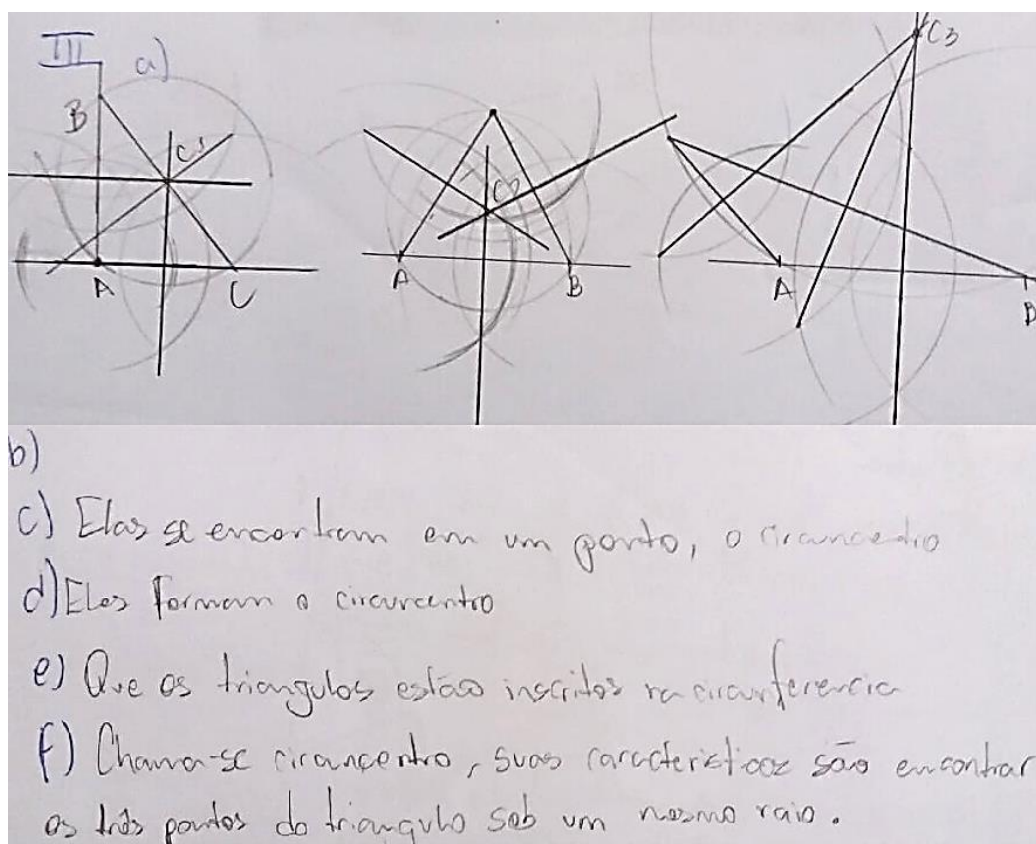 III a)
B
C1
A
C
C2
A
B
C3
A
B
b)
c) Elas se encontram em um ponto, o circuncentro
d) Elas formam o circuncentro
e) Que os triangulos estão inscritos na circunferencia
f) Chama-se circuncentro, suas caracteristicas são encontrar
os três pontos do triangulo sob um mesmo raio.